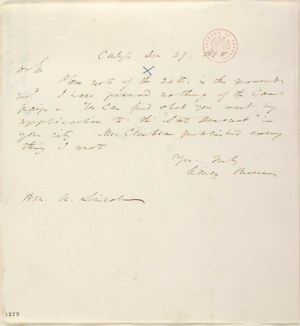 Carlyle Dec 29. 1858.
Dr Sir
Your note of the 24th. is this moment
recd. I have preserved nothing of the Cam-
paign. You can find what you want by
application to the "State Democrat" in
your city. Mr. Clarkson published every
thing I wrote.
Yrs. truly
Sidney Breese
Hon. A. Lincoln
1579